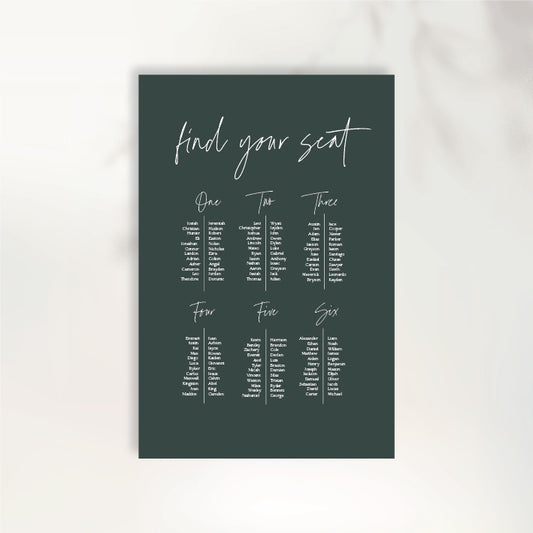 find your seat
One Two Three
Isaiah Jeremiah Levi Wyatt Austin Jace
Christian Hudson Christopher Jayden Jim Cooper
Hunter Robert Joshua John Adam Xavier
Eli Easton Andrew Owen Elias Parker
Jonathan Nolan Lincoln Dylan Jaxson Roman
Connor Nicholas Mateo Luke Greyson Jason
Landon Ezra Ryan Gabriel Jose Santiago
Adrian Colton Jaxon Anthony Ezekiel Chase
Asher Angel Nathan Isaac Carson Sawyer
Cameron Brayden Aaron Grayson Evan Gavin
Leo Jordan Isaiah Jack Maverick Leonardo
Theodore Dominic Thomas Julian Bryson Kayden
Four Five Six
Emmett Ivan Kevin Harrison Alexander Liam
Justin Ashton Bentley Brandon Ethan Noah
Kai Jayce Zachary Cole Daniel William
Max Rowan Everett Declan Matthew James
Diego Kaiden Axel Luis Aiden Logan
Luca Giovanni Tyler Braxton Henry Benjamin
Ryker Eric Micah Damian Joseph Mason
Carlos Jesus Vincent Silas Jackson Elijah
Maxwell Calvin Weston Tristan Samuel Oliver
Kingston Abel Miles Ryder Sebastian Jacob
Juan King Wesley Bennett David Lucas
Maddox Camden Nathaniel George Carter Michael